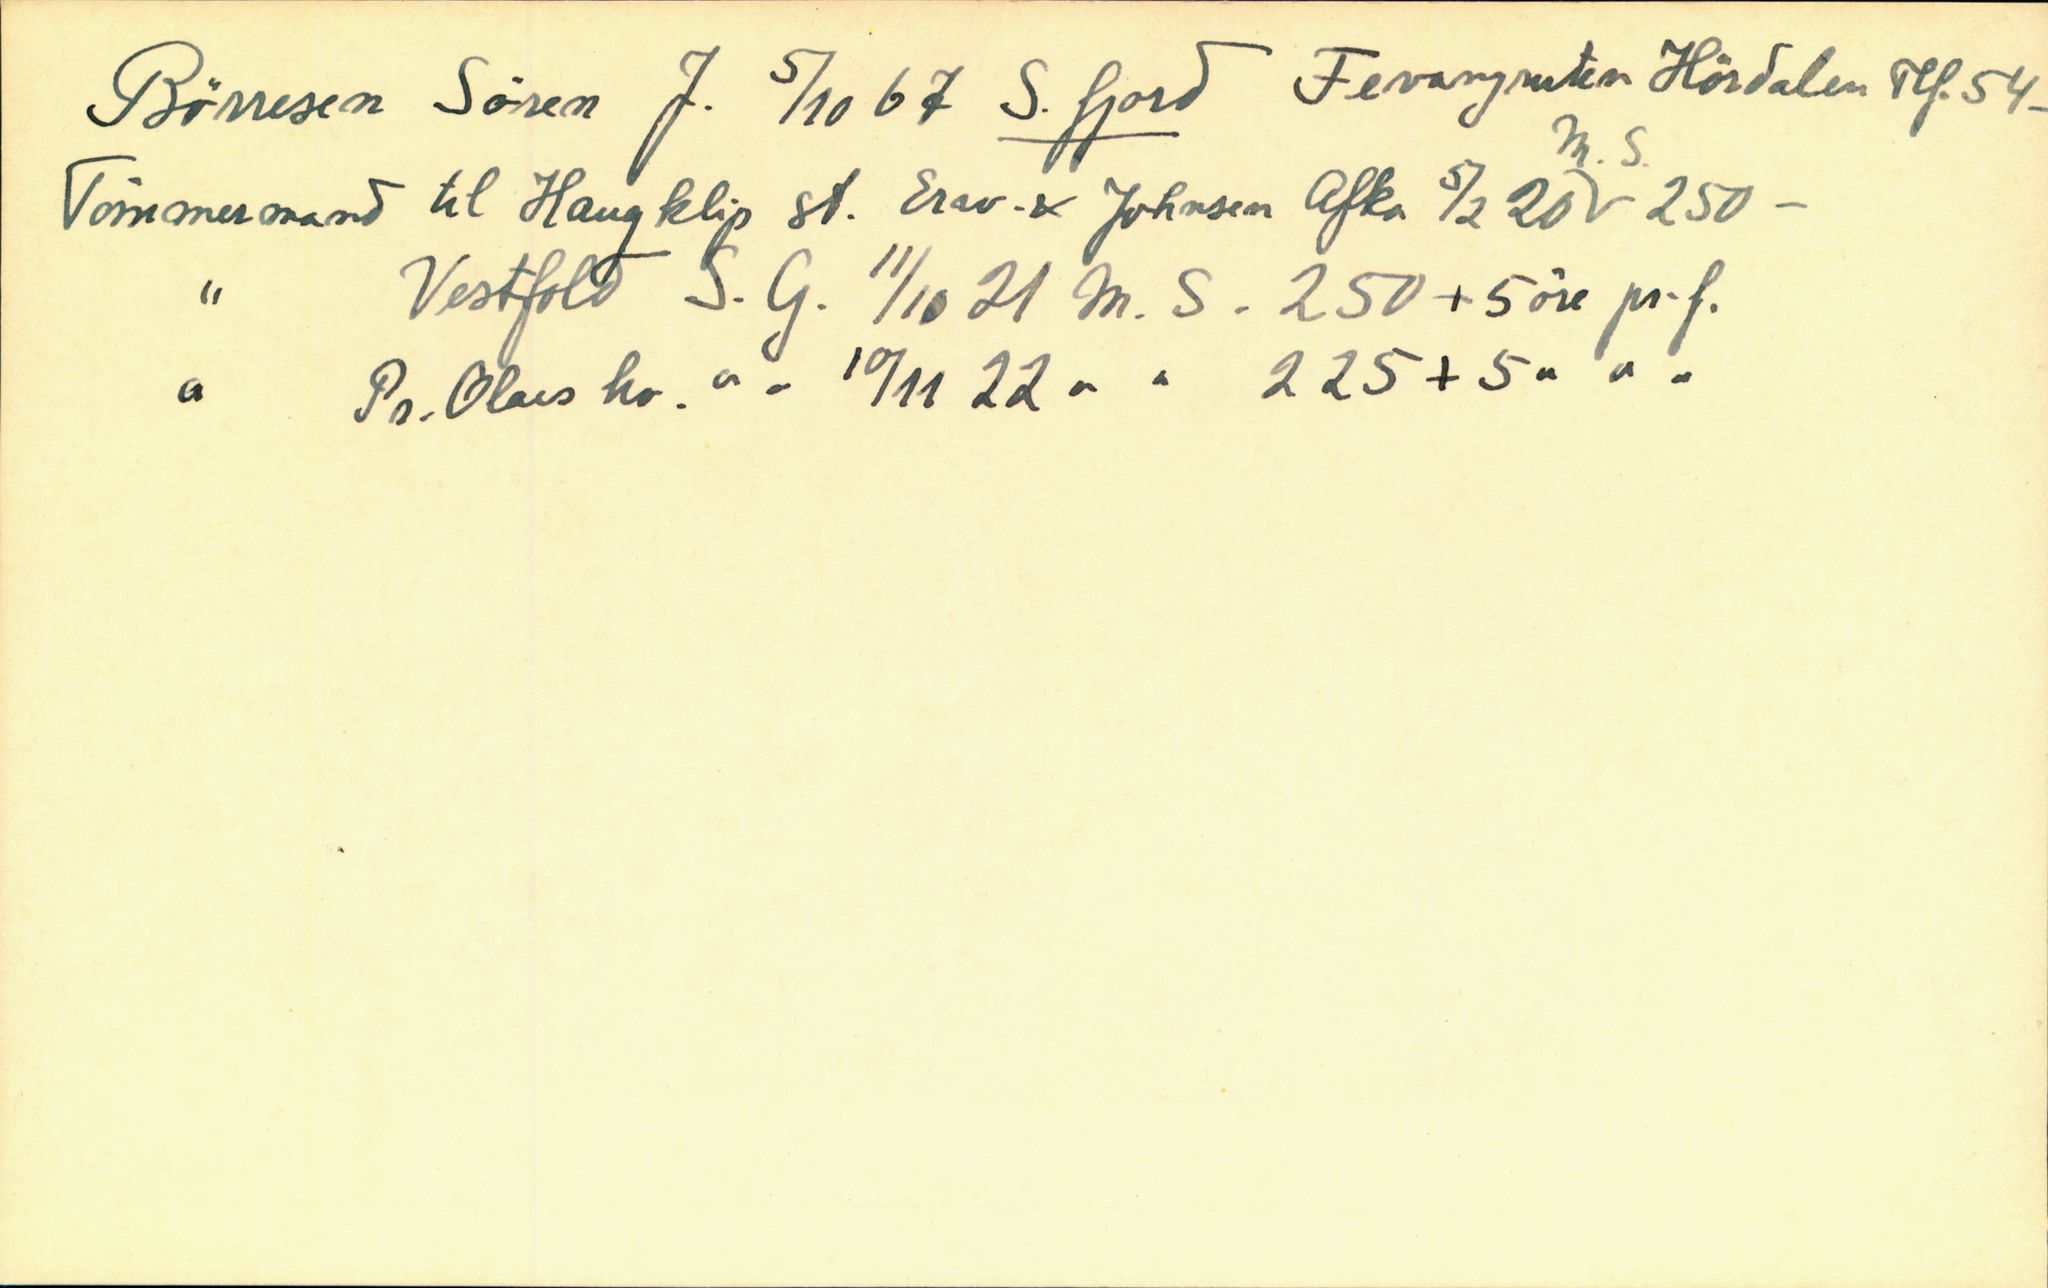 Börresen Sören J. 5/10 67 S. fjord Fevangruten Hördalen Tlf. 54-
M. S.
Tömmermand til Haugklip st. Erav. & Johnsen Afka 5/2 20 250 -
" Vestfold S. G. 11/10 21 M. S. 250 + 5 öre pr. f.
" Pr. Olaus kv. " " 10/11 22 " " 225 + 5 " " "